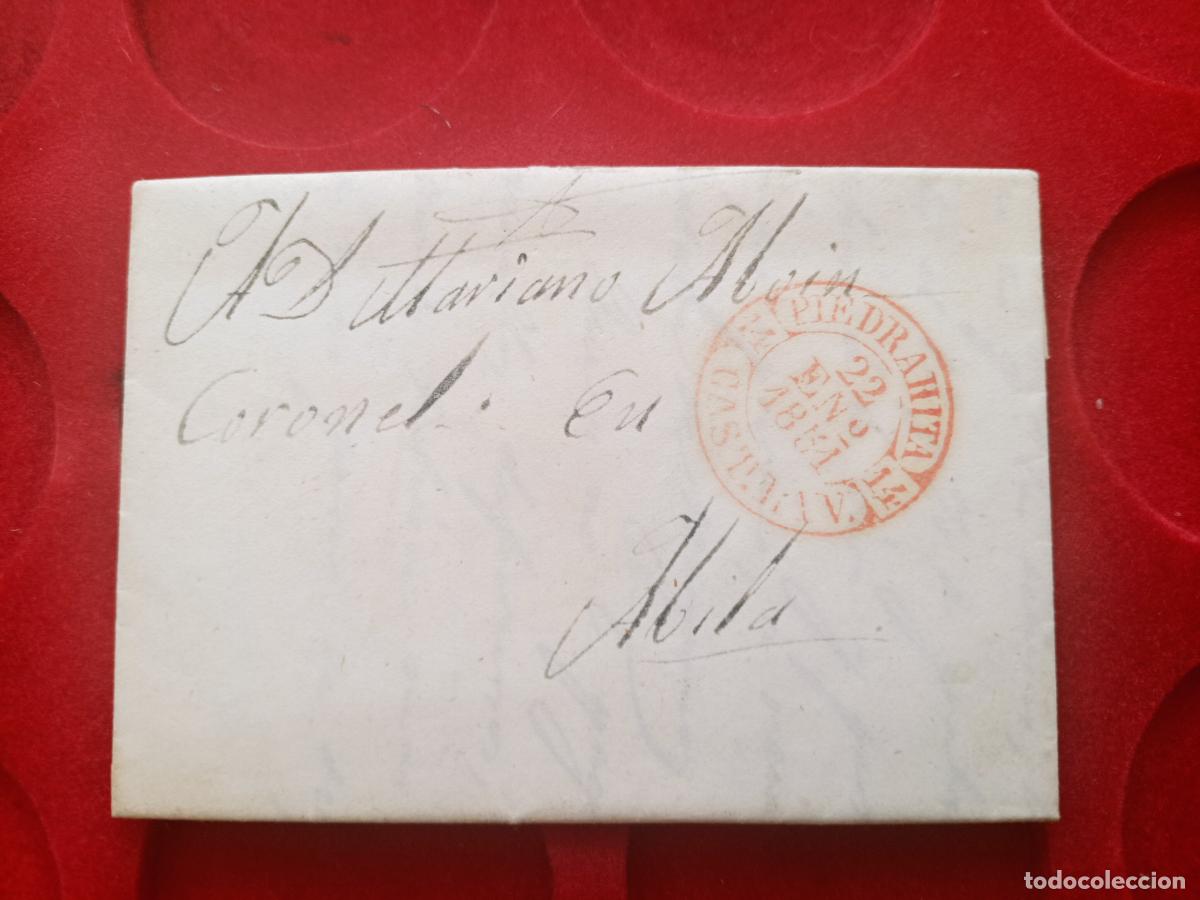 A D Mariano Moin
Coronel. En
Abila
PIEDRAHITA
14
CAST. LA V.
14
22
ENo
1851
todocoleccion